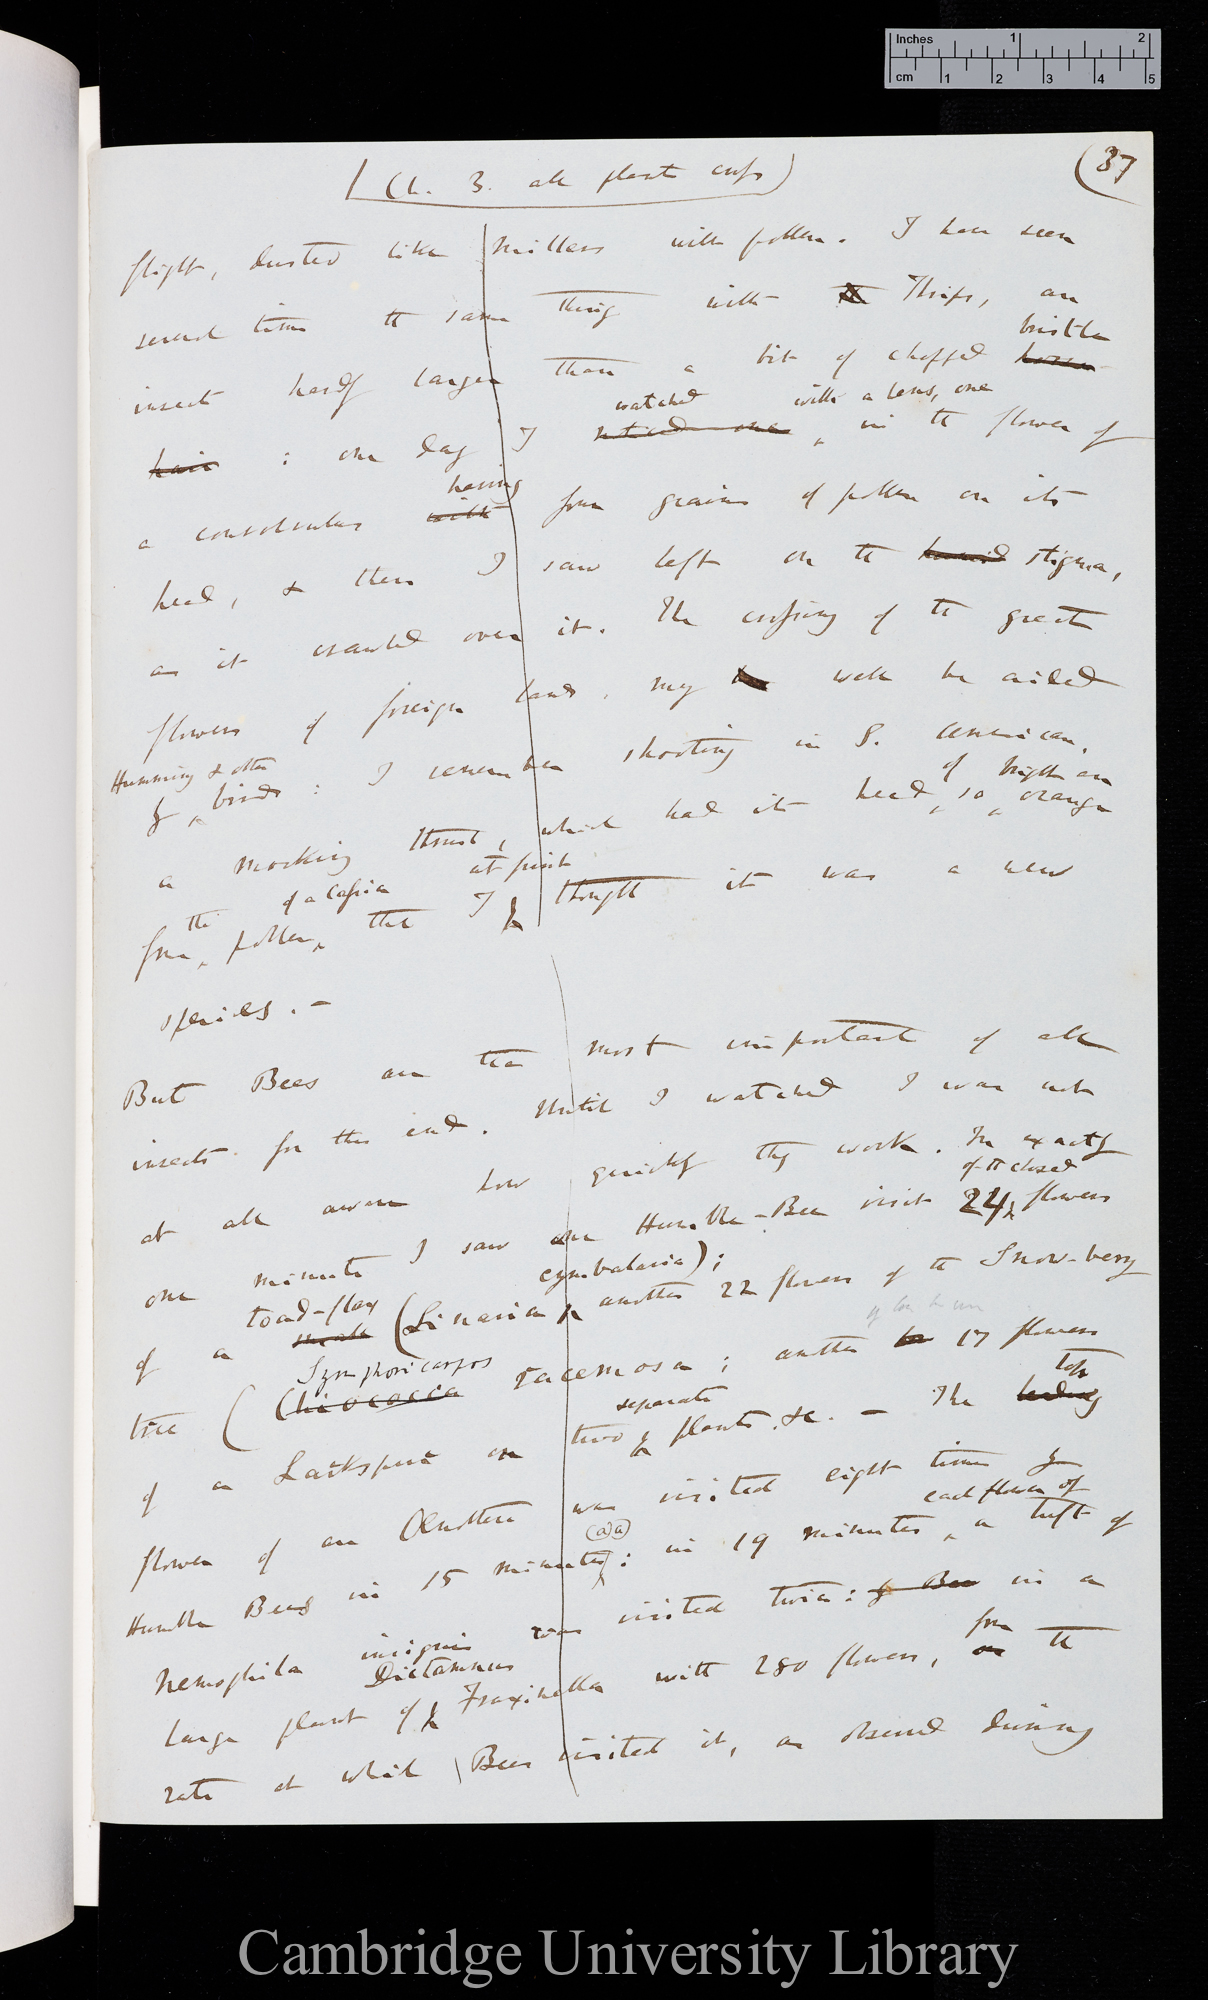 Inches 1 2
cm 1 2 3 4 5
(Ch. 3. all plants cross)
(37
flight, dusted like millers with pollen. I have seen
several times the same thing with Thrips, an
bristle
insect hardly larger than a bit of chopped horse
watched with a lens, one
hair : one day I noticed one in the flower of
having
a convolvulus with four grains of pollen on its
head, & these I saw left on the humid stigma,
as it crawled over it. The crossing of the great
flowers of foreign lands, may well be aided
Humming & other
by birds : I remember shooting in S. American,
of bright an
a mocking thrush, which had its head, so orange
the of a Cassia at first
from pollen, that I thought it was a new
species. –
But Bees are the most important of all
insects for this end. Until I watched I was not
at all aware how quickly they work. In exactly
of the closed
one minute I saw one Humble-Bee visit 24 flowers
toad-flax cymbalaria);
of a small (Linaria another 22 flowers of the Snow-berry
Symphoricarpos
tree (Chiococca racemosa; another 17 flowers
separate top
of a Larkspur on two plants. &c. – The leading
flower of an Oenothera was visited eight times by
(a)(a) each flower of
Humble Bees in 15 minutes : in 19 minutes a tuft of
insignis
Nemophila was visited twice : by Bees in a
Dictamnus from
large plant of Fraxinella with 280 flowers, on the
rate at which Bees visited it, as observed during
Cambridge University Library